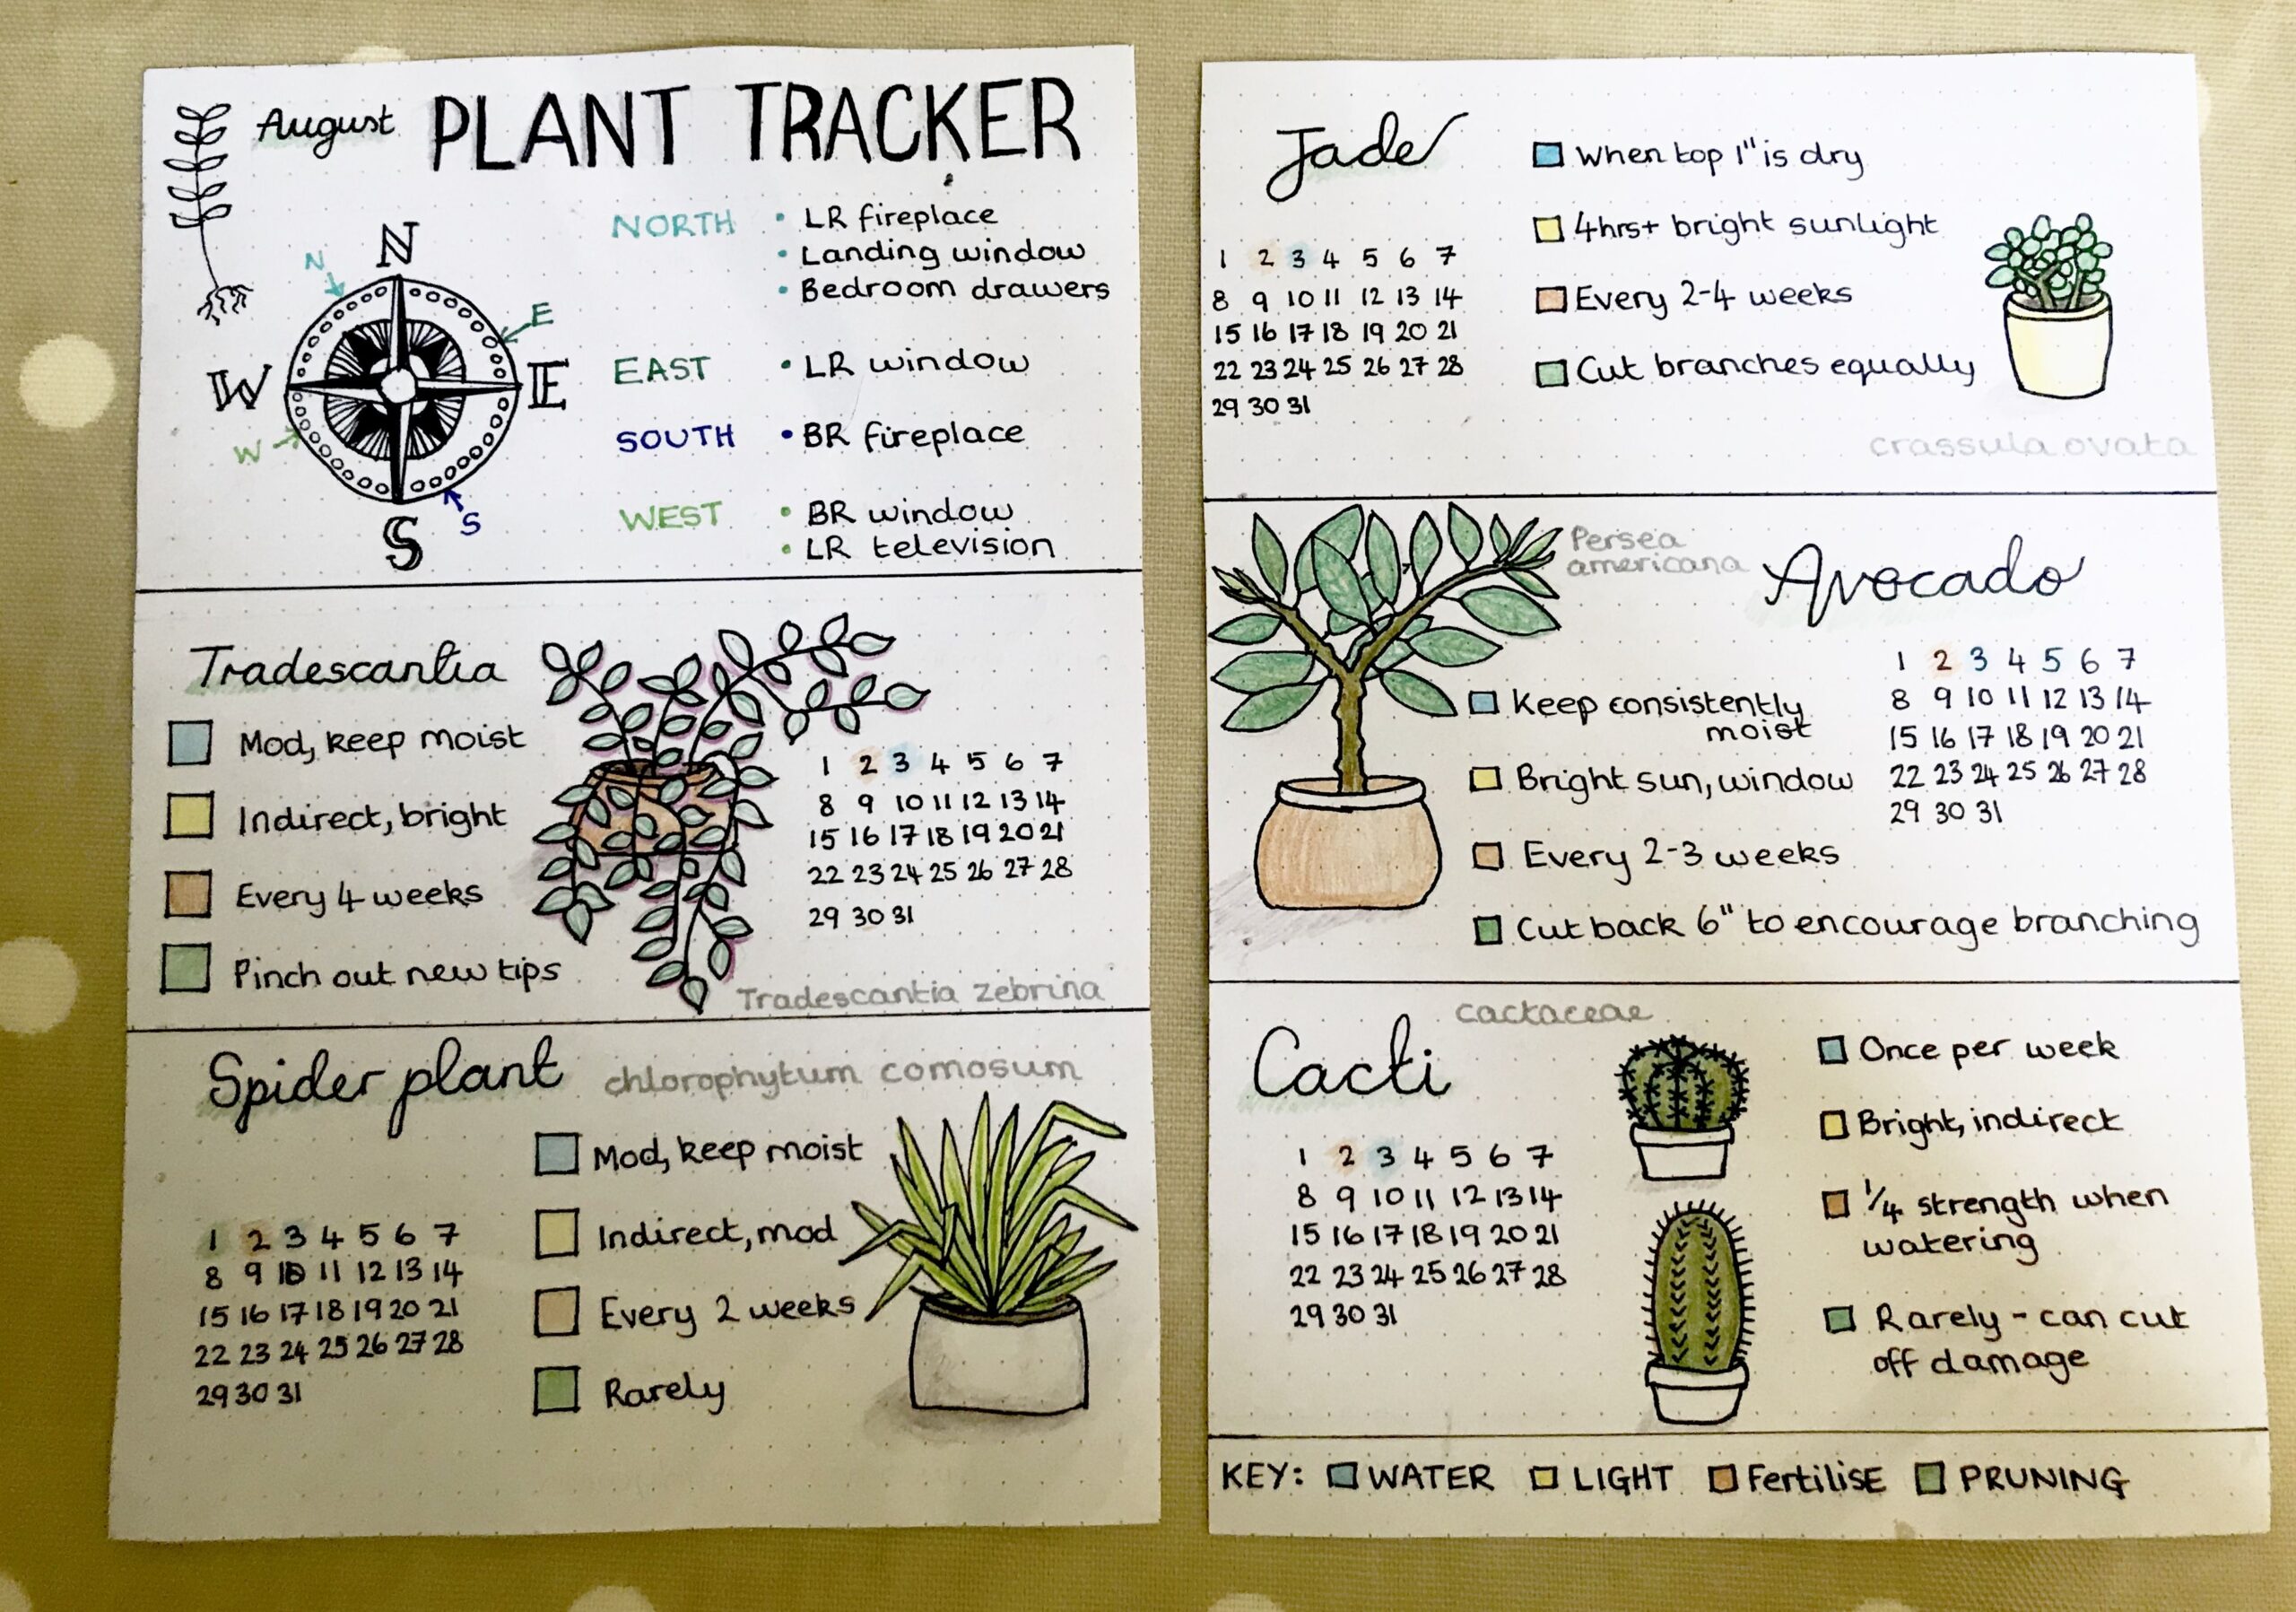 August PLANT TRACKER
N
N
E
W
E
W
S
S
NORTH • LR fireplace
• Landing window
• Bedroom drawers
EAST • LR window
SOUTH • BR fireplace
WEST • BR window
• LR television
Tradescantia
Mod, keep moist
Indirect, bright
Every 4 weeks
Pinch out new tips
1 2 3 4 5 6 7
8 9 10 11 12 13 14
15 16 17 18 19 20 21
22 23 24 25 26 27 28
29 30 31
Tradescantia zebrina
Spider plant chlorophytum comosum
Mod, keep moist
Indirect, mod
Every 2 weeks
Rarely
1 2 3 4 5 6 7
8 9 10 11 12 13 14
15 16 17 18 19 20 21
22 23 24 25 26 27 28
29 30 31
Jade
When top 1" is dry
4hrs+ bright sunlight
Every 2-4 weeks
Cut branches equally
1 2 3 4 5 6 7
8 9 10 11 12 13 14
15 16 17 18 19 20 21
22 23 24 25 26 27 28
29 30 31
crassula ovata
Persea
americana
Avocado
Keep consistently
moist
Bright sun, window
Every 2-3 weeks
Cut back 6" to encourage branching
1 2 3 4 5 6 7
8 9 10 11 12 13 14
15 16 17 18 19 20 21
22 23 24 25 26 27 28
29 30 31
cactaceae
Cacti
1 2 3 4 5 6 7
8 9 10 11 12 13 14
15 16 17 18 19 20 21
22 23 24 25 26 27 28
29 30 31
Once per week
Bright, indirect
1/4 strength when
watering
Rarely - can cut
off damage
KEY: WATER LIGHT FertiliSE PRUNING